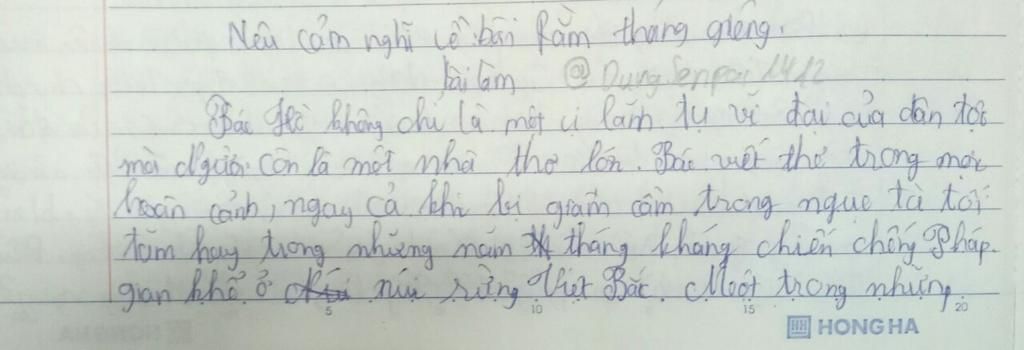 Nêu cảm nghĩ về bài Rằm tháng giêng.
Bài làm @DungSenpai1412
Bác Hồ không chỉ là một vị lãnh tụ vĩ đại của dân tộc
mà Người còn là một nhà thơ lớn. Bác viết thơ trong mọi
hoàn cảnh, ngay cả khi bị giam cầm trong ngục tù tối
tăm hay trong những năm tháng kháng chiến chống Pháp
gian khổ ở núi rừng Việt Bắc. Một trong những
5 10 15 20
HONG HA